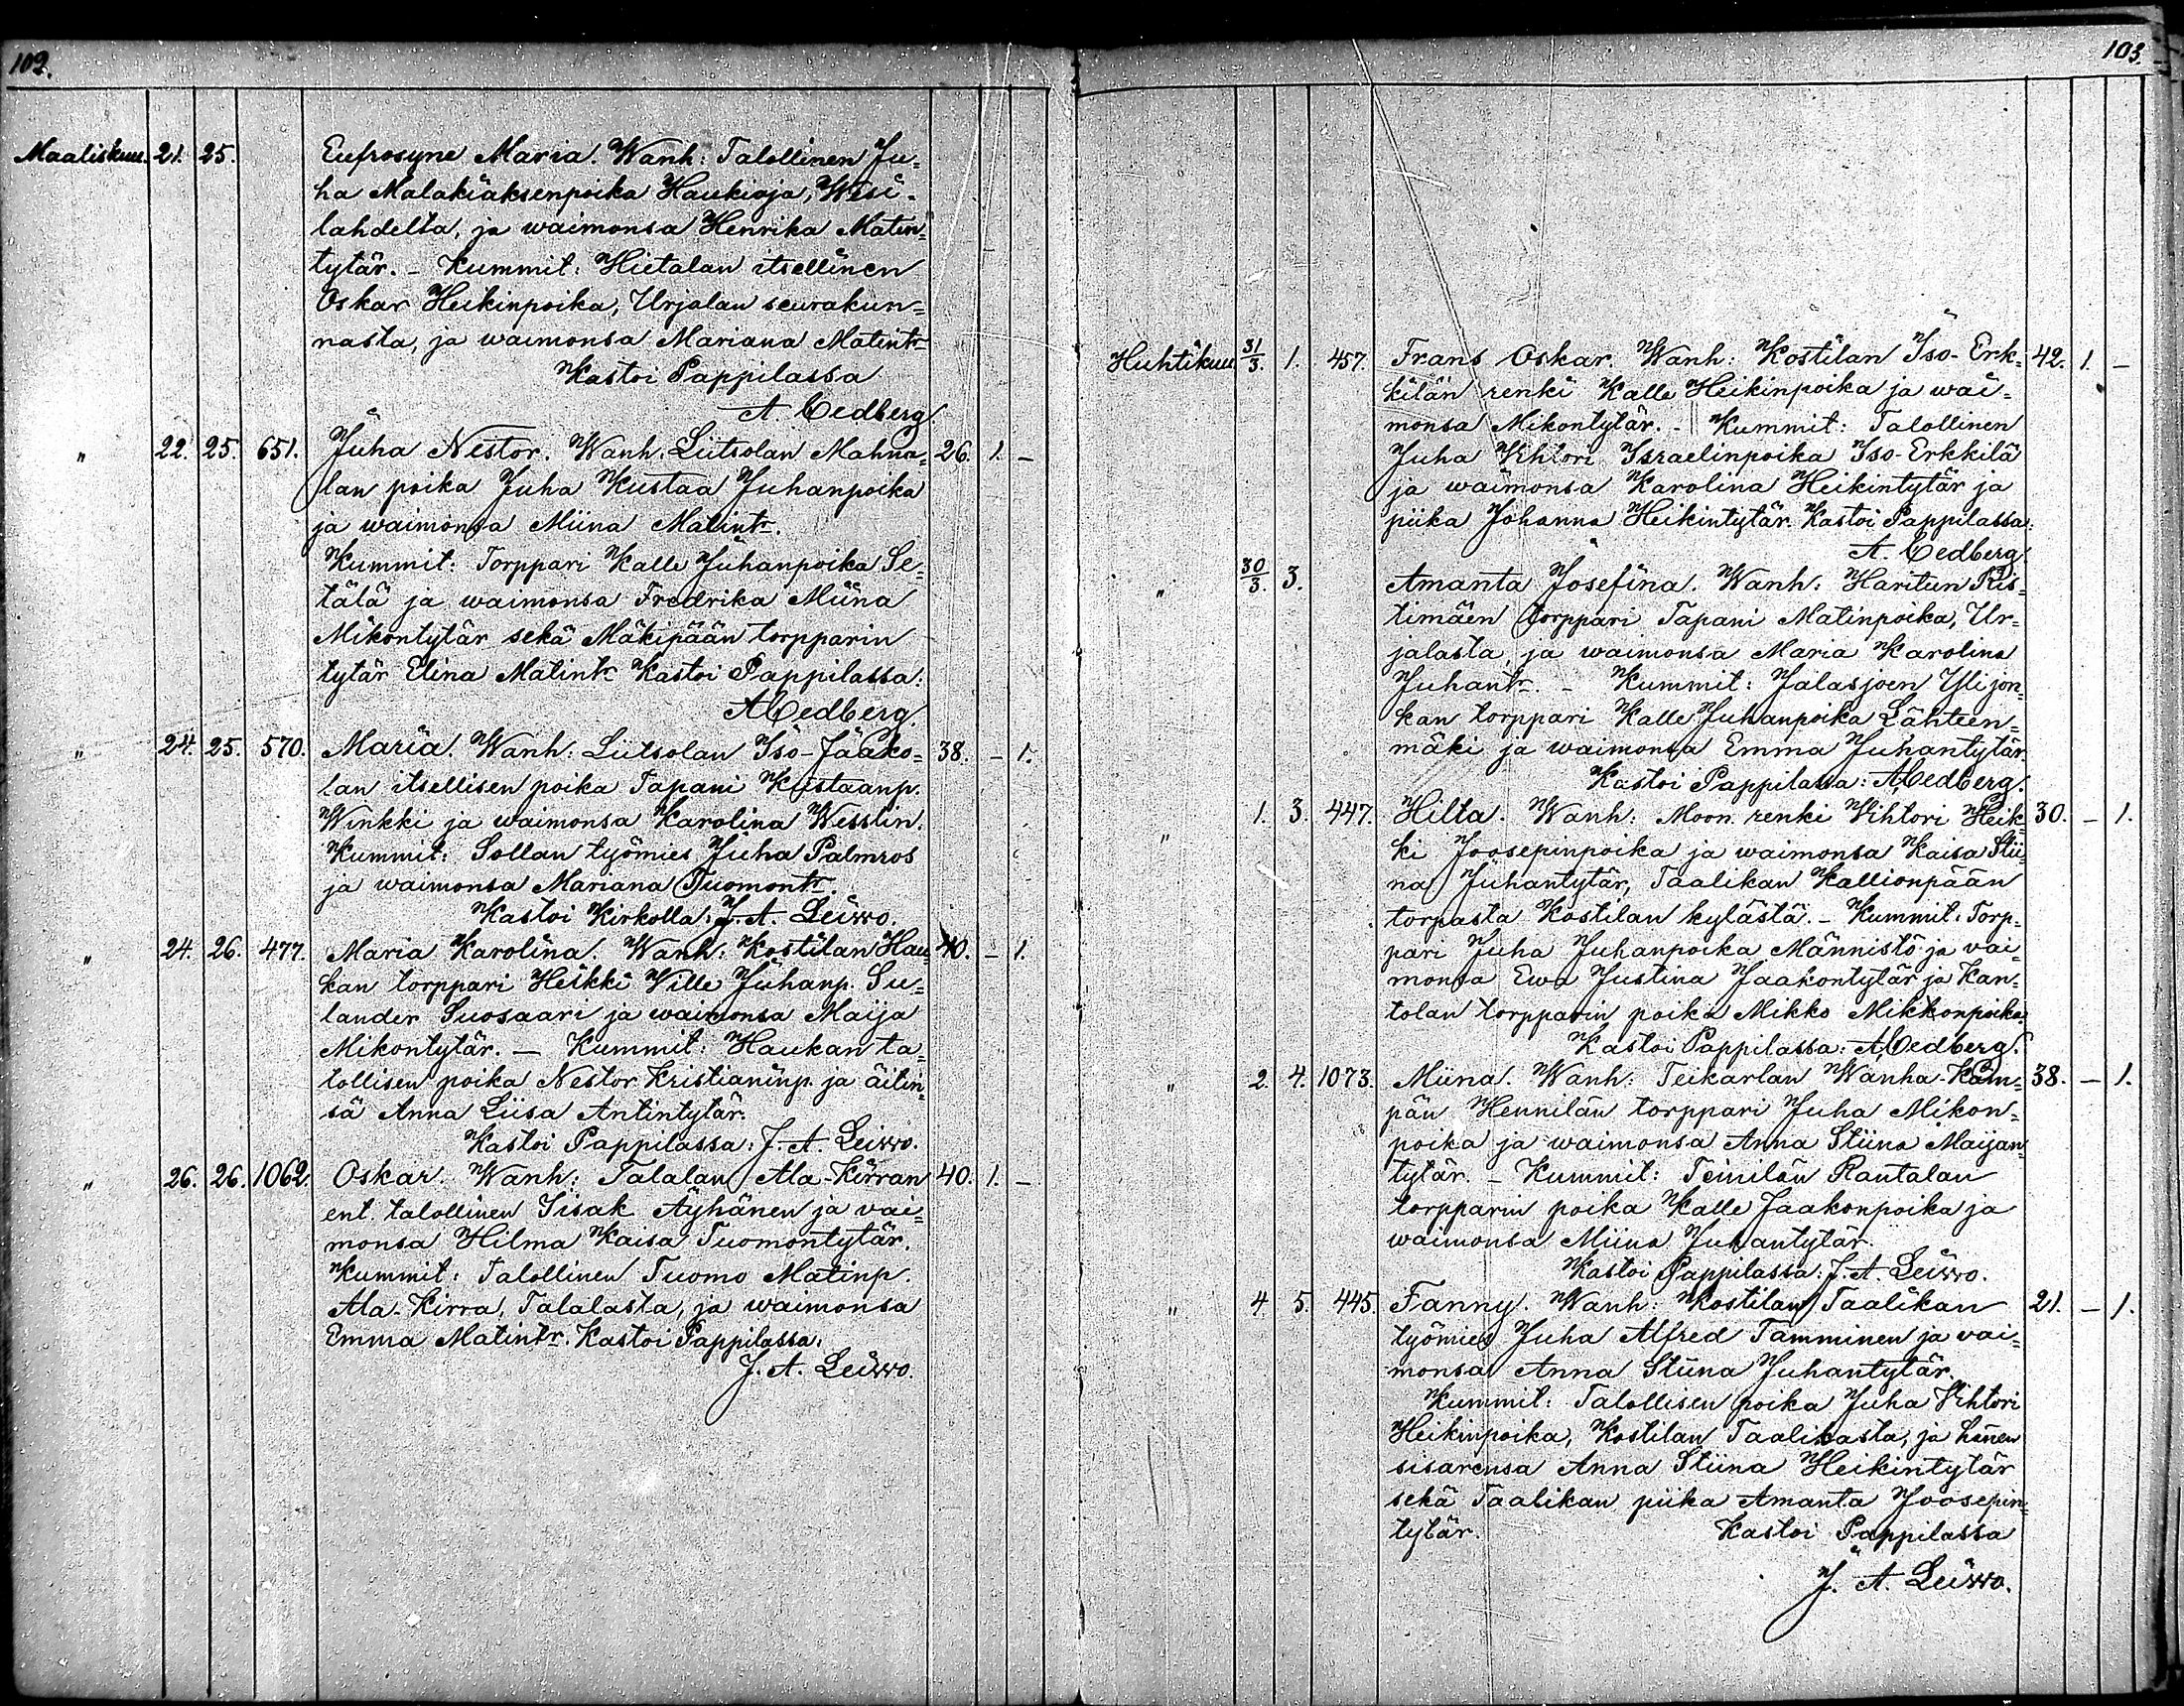 102.
Maaliskuu. 21. 25. Eufrosyne Maria. Wanh: Talollinen Ju=
ha Malakiaksenpoika Haukioja, Wesi=
lahdelta, ja waimonsa Henrika Matin=
tytär. – Kummit: Hietalan itsellinen
Oskar Heikinpoika, Urjalan seurakun=
nasta, ja waimonsa Mariana Matintr
Kastoi Pappilassa
A. Cedberg.
" 22. 25. 651. Juha Nestor. Wanh: Liitsolan Mahna= 26. 1. –
lan poika Juha Kustaa Juhanpoika
ja waimonsa Miina Matintr.
Kummit: Torppari Kalle Juhanpoika Se=
tälä ja waimonsa Fredrika Miina
Mikontytär sekä Mäkipään torpparin
tytär Elina Matintr Kastoi Pappilassa:
A Cedberg.
" 24. 25. 570. Maria. Wanh: Liitsolan Iso-Jaako= 38. – 1.
lan itsellisen poika Tapani Kustaanp.
Winkki ja waimonsa Karolina Wesslin.
Kummit: Sollan työmies Juha Palmros
ja waimonsa Mariana Tuomontr.
Kastoi Kirkolla: J. A. Leiwo.
" 24. 26. 477. Maria Karolina. Wanh: Kostilan Hau= 40. – 1.
kan torppari Heikki Wille Juhanp. Su=
lander Suosaari ja waimonsa Maija
Mikontytär. – Kummit: Haukan ta=
lollisen poika Nestor Kristianinp. ja äitin=
sä Anna Liisa Antintytär.
Kastoi Pappilassa: J. A. Leiwo.
" 26. 26. 1062. Oskar. Wanh: Talalan Ala-Kirran 40. 1. –
ent. talollinen Iisak Äyhänen ja vai=
monsa Hilma Kaisa Tuomontytär.
Kummit: Talollinen Tuomo Matinp.
Ala-Kirra, Talalasta, ja waimonsa
Emma Matintr. Kastoi Pappilassa:
J. A. Leiwo.
103.
Huhtikuu. 31/3. 1. 457. Frans Oskar. Wanh: Kostilan Iso-Erk= 42. 1. –
kilän renki Kalle Heikinpoika ja wai=
monsa Mikontytär. – Kummit: Talollinen
Juha Vihtori Israelinpoika Iso-Erkkilä
ja waimonsa Karolina Heikintytär ja
piika Johanna Heikintytär. Kastoi Pappilassa:
A. Cedberg.
" 30/3. 3. Amanta Josefina. Wanh: Haritun Ris=
timäen torppari Tapani Matinpoika, Ur=
jalasta, ja waimonsa Maria Karolina
Juhantr. – Kummit: Jalasjoen Ylijon=
kan torppari Kalle Juhanpoika Lähteen=
mäki ja waimonsa Emma Juhantytär.
Kastoi Pappilassa: A Cedberg.
" 1. 3. 447. Hilta. Wanh: Moon renki Vihtori Heik= 30. – 1.
ki Joosepinpoika ja waimonsa Kaisa Stii=
na Juhantytär, Taalikan Kallionpään
torpasta Kostilan kylästä. – Kummit: Torp=
pari Juha Juhanpoika Männistö ja vai=
monsa Ewa Justina Jaakontytär ja Kan=
tolan torpparin poika Mikko Mikkonpoika.
Kastoi Pappilassa: A Cedberg.
" 2. 4. 1073. Miina. Wanh: Teikarlan Wanha-Kam= 38. – 1.
pän Hennilän torppari Juha Mikon=
poika ja waimonsa Anna Stiina Maijan=
tytär. – Kummit: Teinilän Rantalan
torpparin poika Kalle Jaakonpoika ja
waimonsa Miina Juhantytär.
Kastoi Pappilassa: J. A. Leiwo.
" 4. 5. 445. Fanny. Wanh: Kostilan Taalikan 21. – 1.
työmies Juha Alfred Tamminen ja vai=
monsa Anna Stiina Juhantytär.
Kummit: Talollisen poika Juha Vihtori
Heikinpoika, Kostilan Taalikasta, ja hänen
sisarensa Anna Stiina Heikintytär
sekä Taalikan piika Amanta Joosepin=
tytär. Kastoi Pappilassa
J. A. Leiwo.